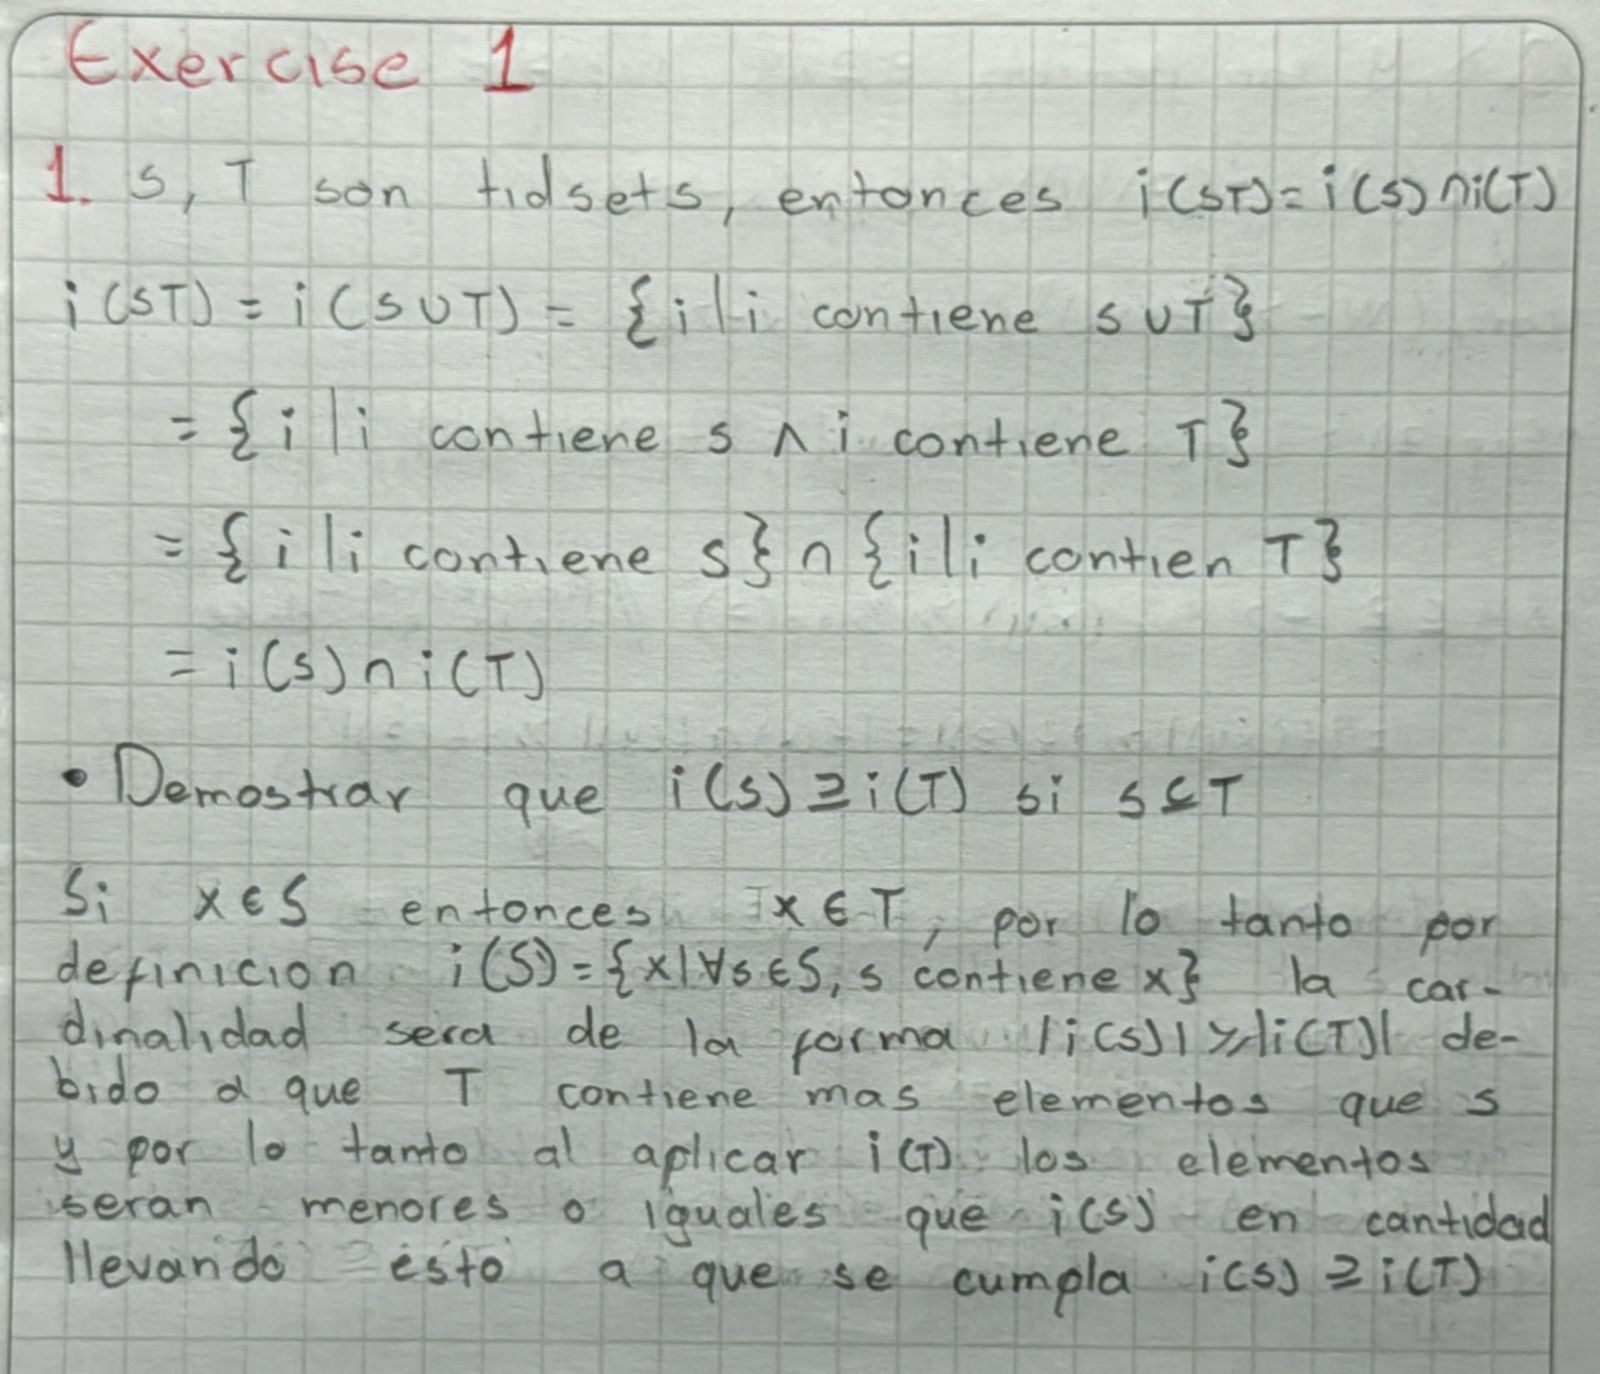 Exercise 1
1. S, T son tidsets, entonces i(ST)=i(S)∩i(T)
i(ST) = i(S∪T) = {i|i contiene S∪T}
= {i|i contiene S ∧ i contiene T}
= {i|i contiene S} ∩ {i|i contien T}
= i(S) ∩ i(T)
• Demostrar que i(S) ⊇ i(T) si S ⊆ T
Si x ∈ S entonces x ∈ T, por lo tanto por
definicion i(S)={x|∀s∈S, s contiene x} la car-
dinalidad sera de la forma |i(S)| ≥ |i(T)| de-
bido a que T contiene mas elementos que S
y por lo tanto al aplicar i(T) los elementos
seran menores o iguales que i(S) en cantidad
llevando esto a que se cumpla i(S) ⊇ i(T)